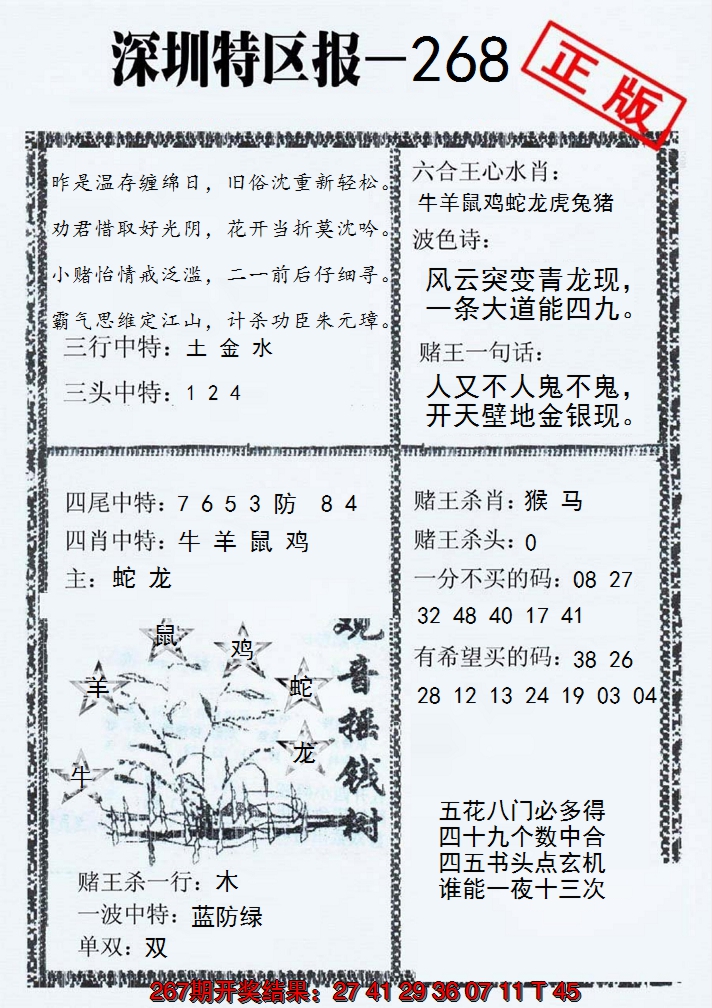 深圳特区报-268
正版
昨是温存缠绵日，旧俗沈重新轻松。
劝君惜取好光阴，花开当折莫沈吟。
小赌怡情戒泛滥，二一前后仔细寻。
霸气思维定江山，计杀功臣朱元璋。
三行中特：土 金 水
三头中特：1 2 4
六合王心水肖：
牛羊鼠鸡蛇龙虎兔猪
波色诗：
风云突变青龙现，
一条大道能四九。
赌王一句话：
人又不人鬼不鬼，
开天壁地金银现。
四尾中特：7 6 5 3 防 8 4
四肖中特：牛 羊 鼠 鸡
主：蛇 龙
鼠
鸡
羊
蛇
龙
牛
观音摇钱树
赌王杀一行：木
一波中特：蓝防绿
单双：双
赌王杀肖：猴 马
赌王杀头：0
一分不买的码：08 27
32 48 40 17 41
有希望买的码：38 26
28 12 13 24 19 03 04
五花八门必多得
四十九个数中合
四五书头点玄机
谁能一夜十三次
267期开奖结果：27 41 29 36 07 11 T 45